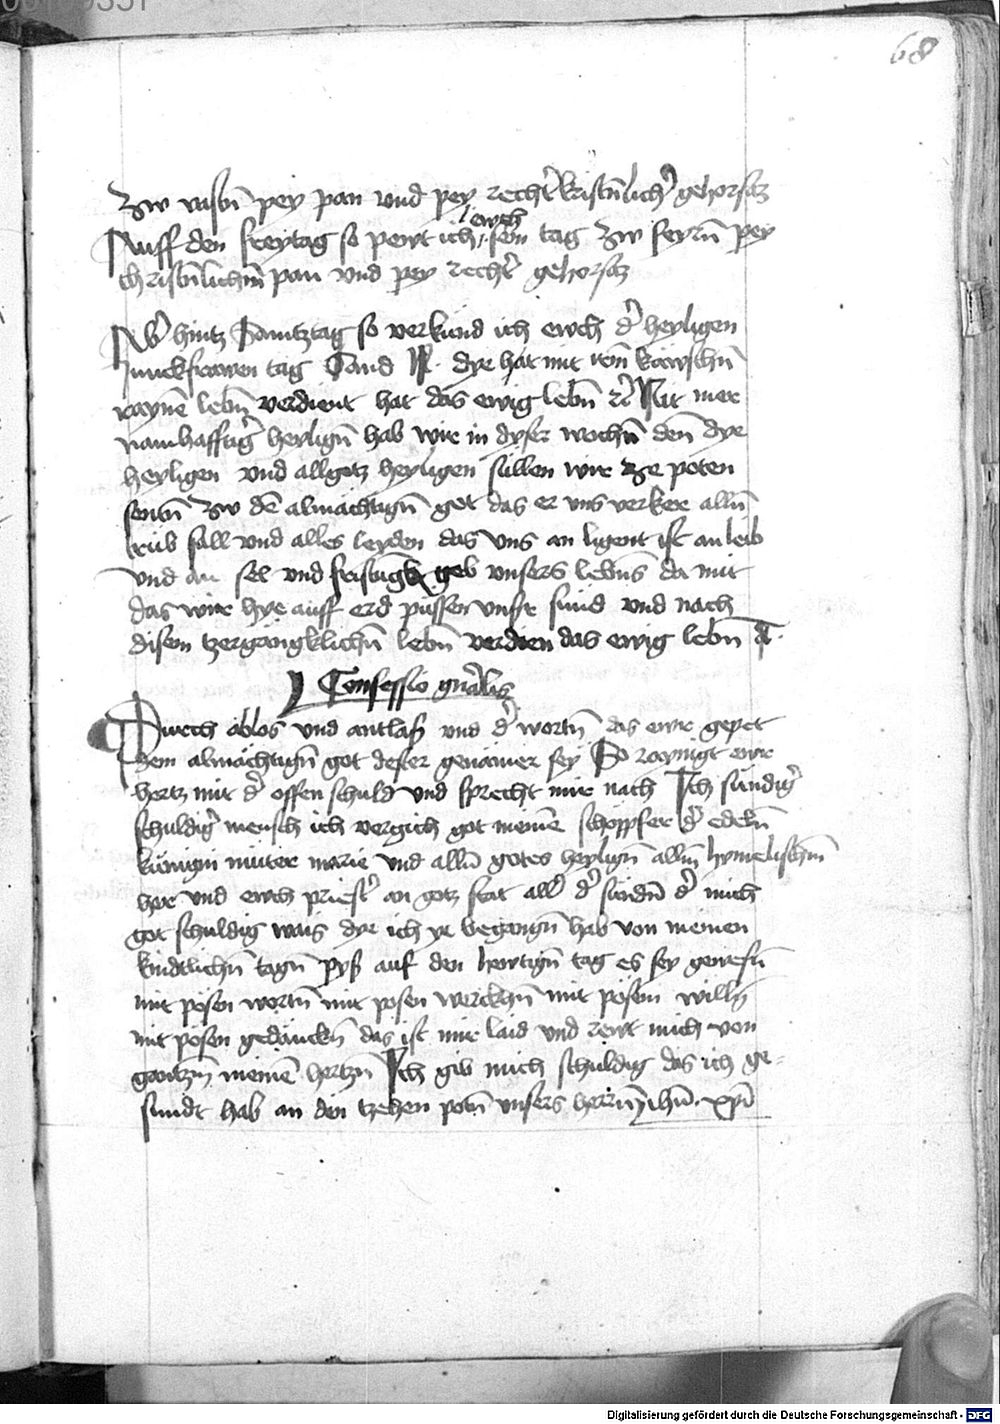 68
zw vastn̄ pey pan vnd pey recht̓ kristn̄lich̓ gehorsam
Auff den freytag so pewt ich ewch sein tag zw feyrn̄ pey
christn̄lichm̄ pan vnd pey recht̓ gehorsam
Ab̓ hintz Samtztag so verkund ich ewch d̓ heyligen
Junckfrawen tag Sand N. dye hat mit irem kewschn̄
raynē lebn̄ verdient hat das ewig lebn̄ Nit mer
namhafftig̓ heylign̄ hab wir in dyser wochn̄ den̄ dye
heyligen vnd all gotz heyligen sullen wir ze poten
senten zw dē almachtign̄ got das er vns verker alln̄
trub sall vnd alles leyden das vns an ligent ist an leib
vnd an sel vnd geb vnsers lebn̄s da mit
das wir hye auff erd pussen vnsr̓ sund vnd nach
disem tzergangklichn̄ lebn̄ verdien das ewig lebn̄ A.
Confessio gn̄alis
Durch ablos vnd antlas vnd d̓ wortn̄ das ewr gepet
dem almachtign̄ got dester genamer sey So raynigt ewr
hertz mit d̓ offen schuld vnd sprecht mir nach Ich sundig̓
schuldig̓ mensch ich vergich got meinē schopfer d̓ edeln̄
kunigin muter marie vnd alln̄ gotes heylign̄ allm̄ hymelischm̄
her vnd ewch priest̓ an gotz stat all̓ d̓ sundn̄ d̓ mich
got schuldig wais dye ich ye begangn̄ hab von meinen
kindtlichn̄ tagn̄ pys auf den hewtign̄ tag es sey gewesn̄
mit posen wortn̄ mit posen werckhn̄ mit posem willn̄
mit posen gedanckn̄ das ist mir laid vnd rewt mich von
gantzm̄ meinē hertzn̄ Ich gib mich schuldig das ich ge-
sundt hab an den tzehen potn̄ vnsers herrn̄ ihū. xpī
Digitalisierung gefördert durch die Deutsche Forschungsgemeinschaft - DFG